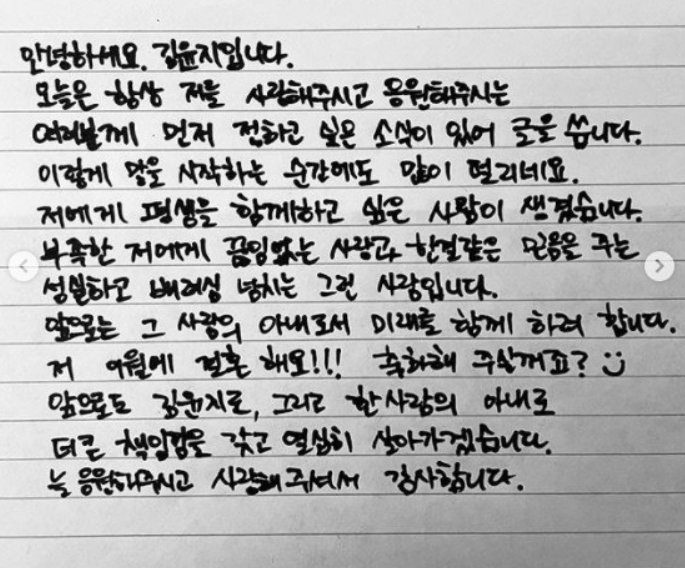 안녕하세요. 김윤지입니다.
오늘은 항상 저를 사랑해주시고 응원해주시는
여러분께 먼저 전하고 싶은 소식이 있어 글을 씁니다.
이렇게 말을 시작하는 순간에도 많이 떨리네요.
저에게 평생을 함께하고 싶은 사람이 생겼습니다.
부족한 저에게 끊임없는 사랑과 한결같은 믿음을 주는
성실하고 배려심 넘치는 그런 사람입니다.
앞으로는 그 사람의 아내로서 미래를 함께 하려 합니다.
저 9월에 결혼해요!!! 축하해 주실꺼죠? :)
앞으로도 김윤지로, 그리고 한 사람의 아내로
더 큰 책임감을 갖고 열심히 살아가겠습니다.
늘 응원해주시고 사랑해주셔서 감사합니다.